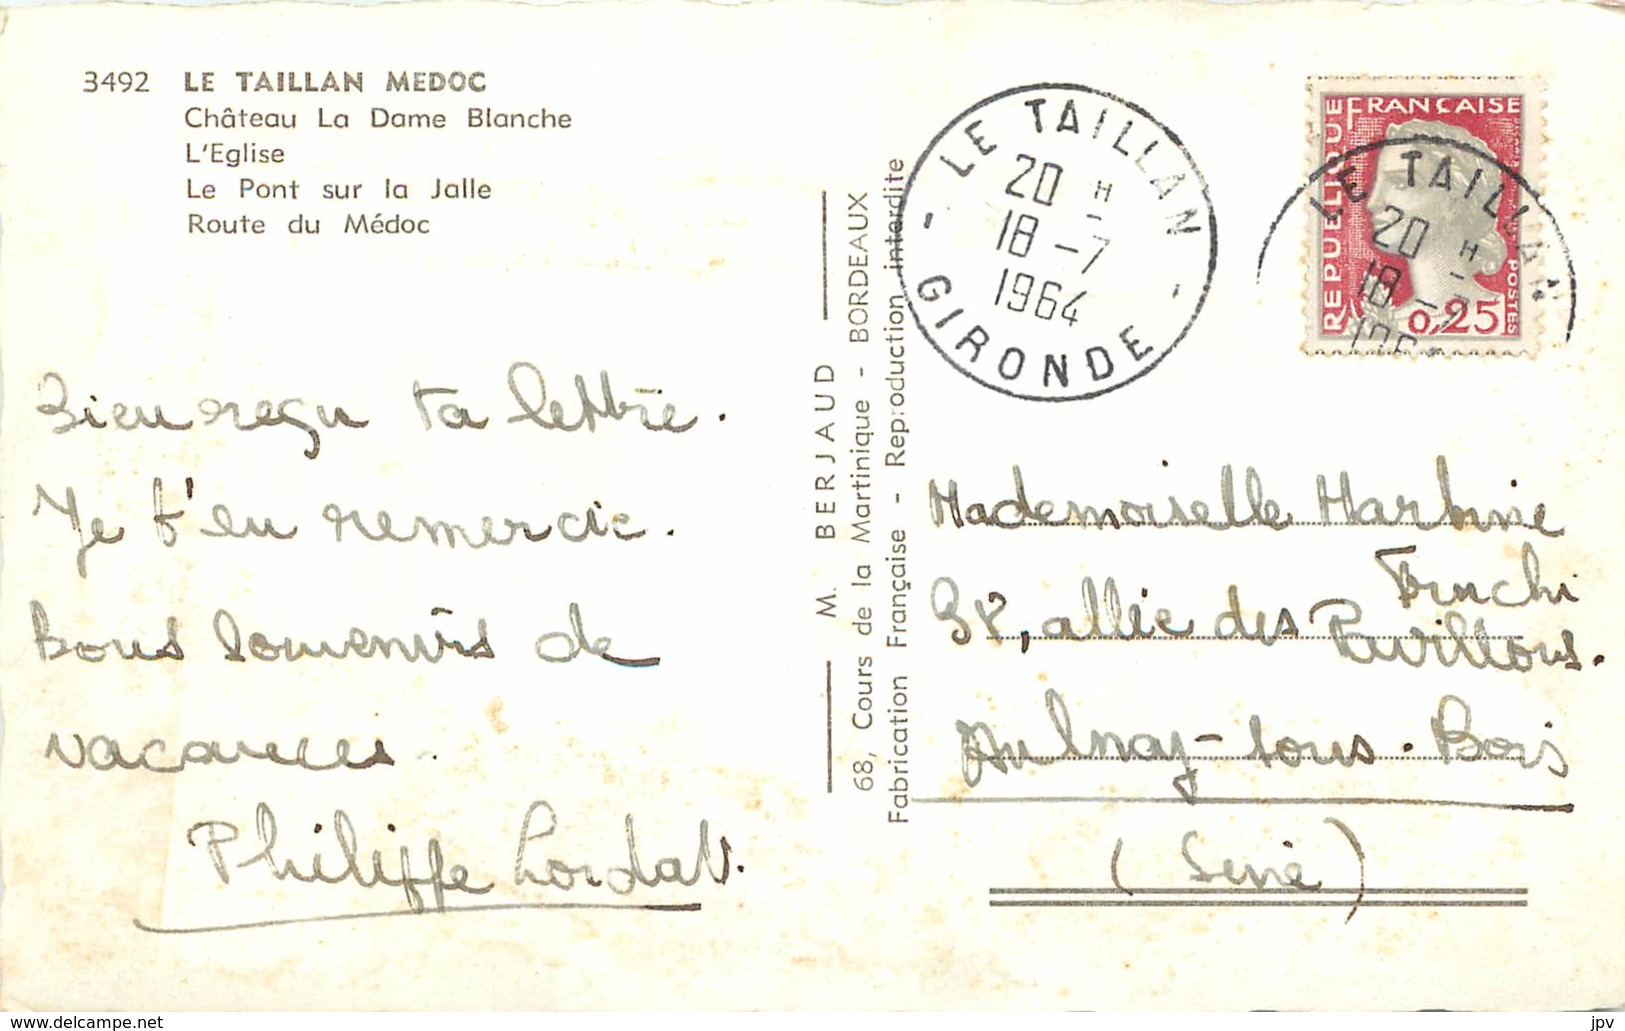 3492 LE TAILLAN MEDOC
Château La Dame Blanche
L'Eglise
Le Pont sur la Jalle
Route du Médoc
Bien reçu ta lettre.
Je t'en remercie.
Bons souvenirs de
vacances.
Philippe Lordat.
M. BERJAUD
68, Cours de la Martinique - BORDEAUX
Fabrication Française - Reproduction interdite
LE TAILLAN
20 H
18-7
1964
- GIRONDE -
REPUBLIQUE FRANÇAISE
POSTES
0,25
LE TAILLAN
20 H
18-7
1964
Mademoiselle
allée des Pavillons.
Aulnay-sous-Bois
(Seine)
jpv